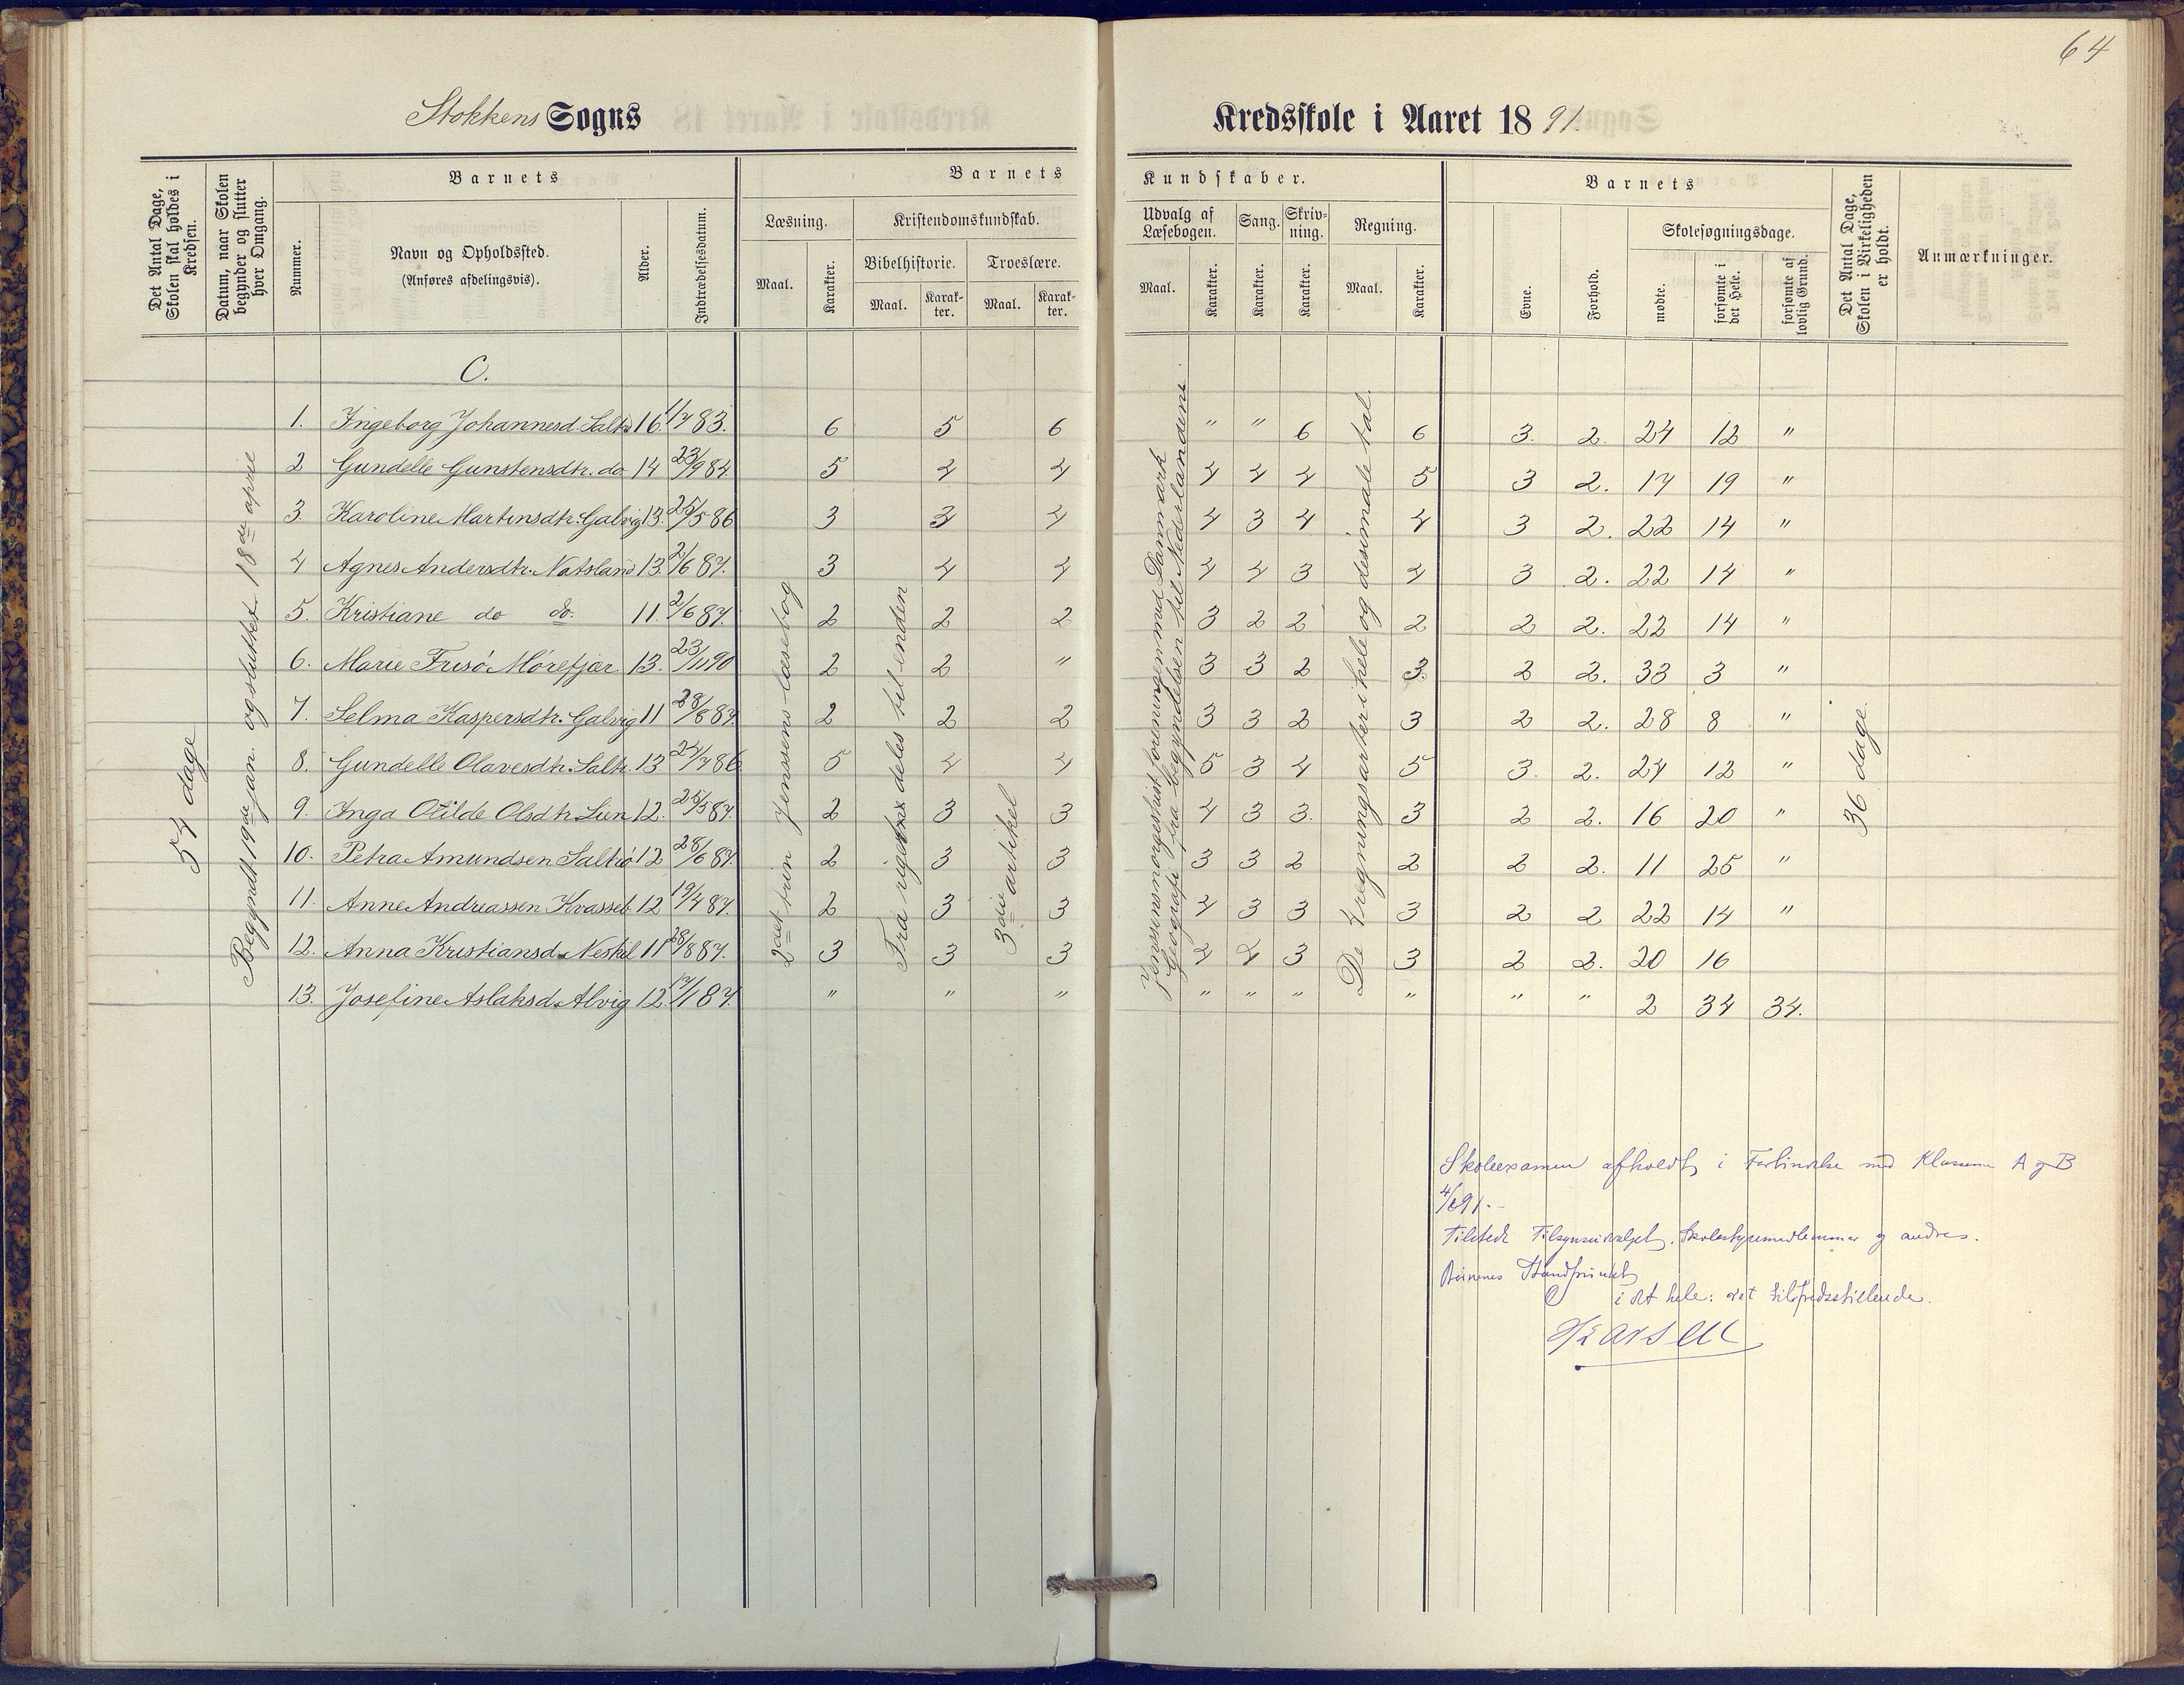 64
Stokkens Sogns Kredsskole i Aaret 1891.
Det Antal Dage, Skolen skal holdes i Kredsen.
Datum, naar Skolen begynder og slutter hver Omgang.
Barnets
Nummer.
Navn og Opholdssted.
(Anføres afdelingsvis).
Alder.
Indtrædelsesdatum.
Barnets Kundskaber.
Læsning.
Maal. Karakter.
Kristendomskundskab.
Bibelhistorie. Troeslære.
Maal. Karakter. Maal. Karakter.
Udvalg af Læsebogen. Sang. Skrivning. Regning.
Maal. Karakter. Karakter. Karakter. Maal. Karakter.
Barnets
Evne. Forhold.
Skolesøgningsdage.
mødte. forsømte i det Hele. forsømte af lovlig Grund.
Det Antal Dage, Skolen i Virkeligheden er holdt.
Anmærkninger.
C.
54 dage
Begyndt 19de jan. og sluttet 18de april
2det trin Jensens læsebog
3die artikel
De 4 regningsarter i hele og desimale tal.
36 dage
1. Ingeborg Johannesd. Saltrø 16 1/4 83. 6 5 6 " " 6 6 3. 2. 24 12 "
2 Gundelle Gunstensdtr. do 14 23/9 84 5 4 4 4 4 4 5 3 2. 17 19 "
3. Karoline Martinsdtr. Galvig 13. 25/5 86 3 3 4 4 3 4 4 3 2. 22 14 "
4 Agnes Andersdtr. Natsland 13. 2/6 87. 3 4 4 4 4 3 4 3 2. 22 14 "
5. Kristiane do do. 11. 2/6 87. 2 2 2 3 2 2 2 2 2. 22 14 "
6. Marie Frisø Mørefjær 13. 23/11 90 2 2 " 3 3 2 3. 2 2. 33 3 "
7. Selma Kaspersdtr. Galvig 11 28/6 87. 2 2 2 3 3 2 3 2 2. 28 8 "
8. Gundelle Olavesdtr. Saltr. 13 24/4 86 5 4 4 5 3 4 5 3. 2. 24 12 "
9. Inga Otilde Olsdtr Lien 12. 25/5 87. 2 3 3 4 3 3. 3 2 2. 16 20 "
10. Petra Amundsen Saltrø 12 28/6 87. 2 3 3 3 3 2 2 2 2. 11 25 "
11. Anne Andreassen Kvasset. 12 19/4 87. 2 3 3 4 3 3 3 2 2 22 14 "
12. Anna Kristiansd. Neskil 11 28/8 87. 3 3 3 4 4 3 3 2 2. 20 16
13. Josefine Aslaksd. Alvig 12. 12/1 87. " " " " " " " " " 2 34 34.
Skoleexamen afholdt i Forbindelse med Klasserne A og B
4/6 91.-
Tilstede Tilsynsudvalget, Skolestyremedlemmer og andres.
Børnenes Standpunkt
i det hele: ret tilfredsstillende.